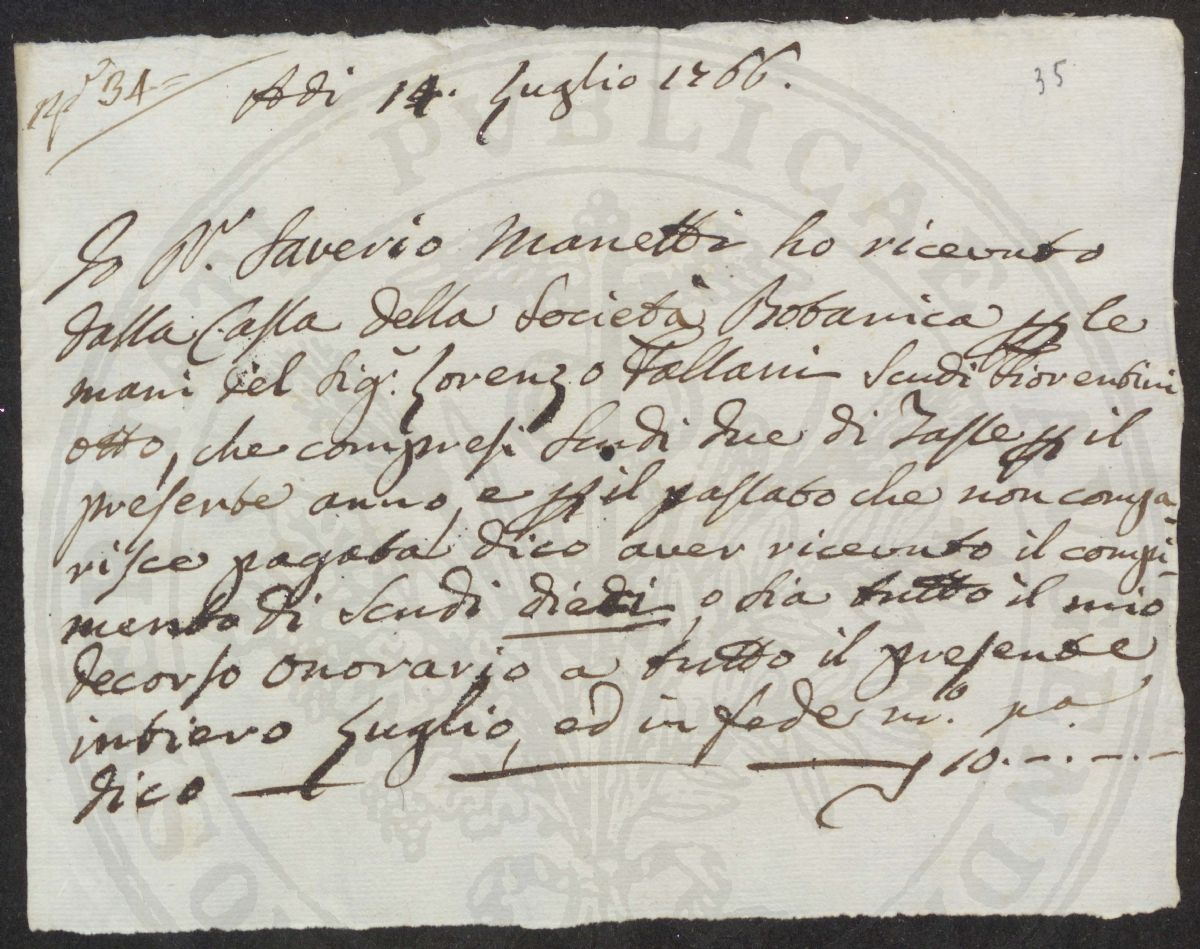 N.° 34=
Adi 14. Luglio 1766.
35
Io D.r Saverio Manetti ho ricevuto
dalla Cassa della Società Botanica p le
mani del Sig.r Lorenzo Tallani Scudi Fiorentini
otto, che compresi Scudi due di Tasse p il
presente anno, e p il passato che non compa-
risce pagata dico aver ricevuto il compi-
mento di Scudi dieci, o sia tutto il mio
decorso onorario a tutto il presente
intiero Luglio, ed in fede m.o p.a
dico 10.-.-.-